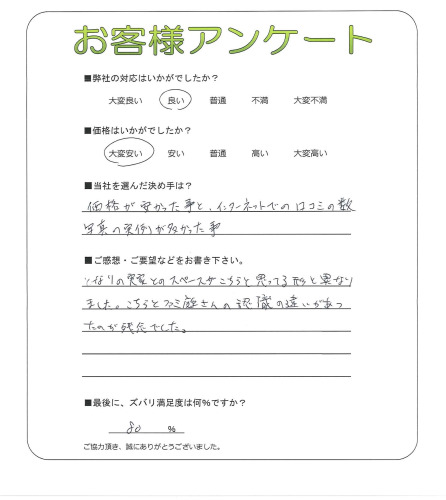 お客様アンケート
■弊社の対応はいかがでしたか?
大変良い 良い 普通 不満 大変不満
■価格はいかがでしたか?
大変安い 安い 普通 高い 大変高い
■当社を選んだ決め手は?
価格が安かった事と、インターネットでの口コミの数
写真の実例が多かった事
■ご感想・ご要望などをお書き下さい。
となりの家とのスペースがこちらと思ってる形と異なり
ました。こちらとファミ庭さんの認識の違いがあっ
たのが残念でした。
■最後に、ズバリ満足度は何%ですか?
80 %
ご協力頂き、誠にありがとうございました。